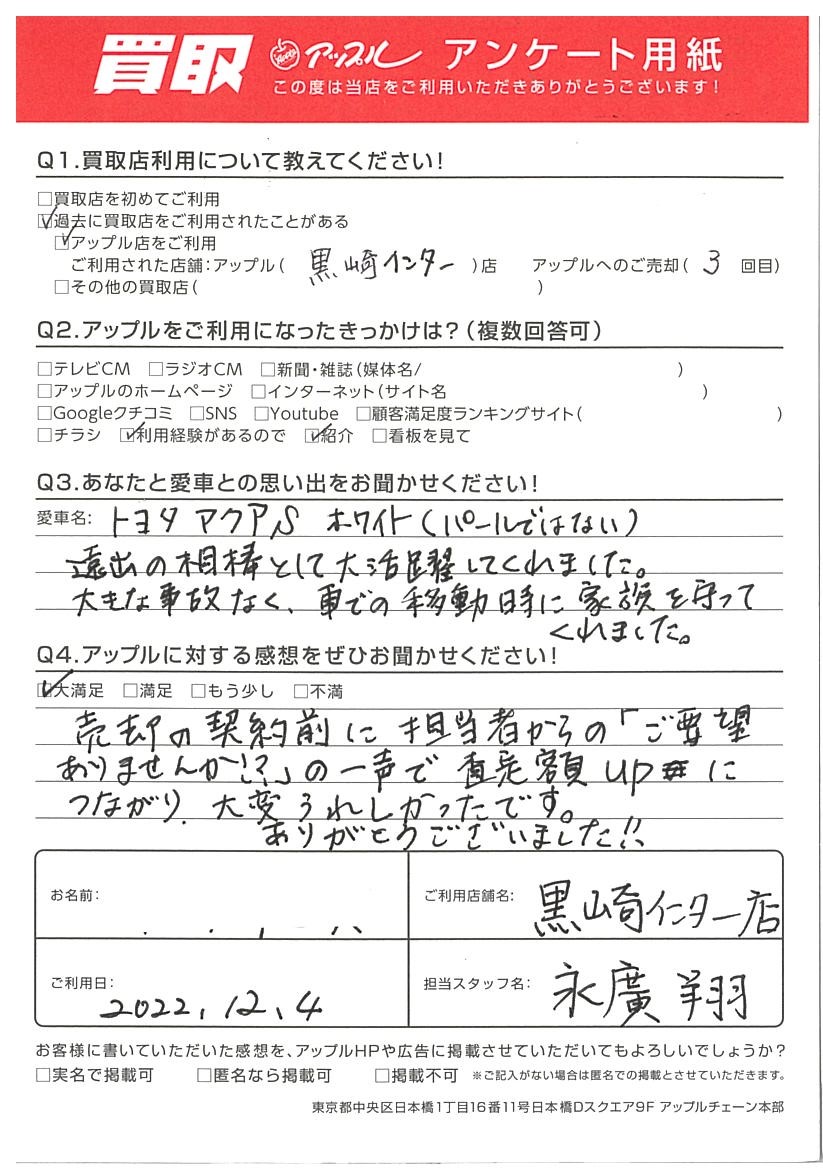 買取 アップル アンケート用紙
この度は当店をご利用いただきありがとうございます!
Q1.買取店利用について教えてください!
□買取店を初めてご利用
☑過去に買取店をご利用されたことがある
☑アップル店をご利用
ご利用された店舗:アップル( 黒崎インター )店 アップルへのご売却( 3 回目)
□その他の買取店( )
Q2.アップルをご利用になったきっかけは?(複数回答可)
□テレビCM □ラジオCM □新聞・雑誌(媒体名/ )
□アップルのホームページ □インターネット(サイト名 )
□Googleクチコミ □SNS □Youtube □顧客満足度ランキングサイト( )
□チラシ ☑利用経験があるので ☑紹介 □看板を見て
Q3.あなたと愛車との思い出をお聞かせください!
愛車名: トヨタ アクアS ホワイト(パールではない)
遠出の相棒として大活躍してくれました。
大きな事故なく、車での移動時に家族を守って
くれました。
Q4.アップルに対する感想をぜひお聞かせください!
☑大満足 □満足 □もう少し □不満
売却の契約前に担当者からの「ご要望
ありませんか!?」の一声で査定額UPに
つながり、大変うれしかったです。
ありがとうございました!!
お名前:
ご利用店舗名: 黒崎インター店
ご利用日: 2022.12.4
担当スタッフ名: 永廣 翔
お客様に書いていただいた感想を、アップルHPや広告に掲載させていただいてもよろしいでしょうか?
□実名で掲載可 □匿名なら掲載可 □掲載不可 ※ご記入がない場合は匿名での掲載とさせていただきます。
東京都中央区日本橋1丁目16番11号日本橋Dスクエア9F アップルチェーン本部